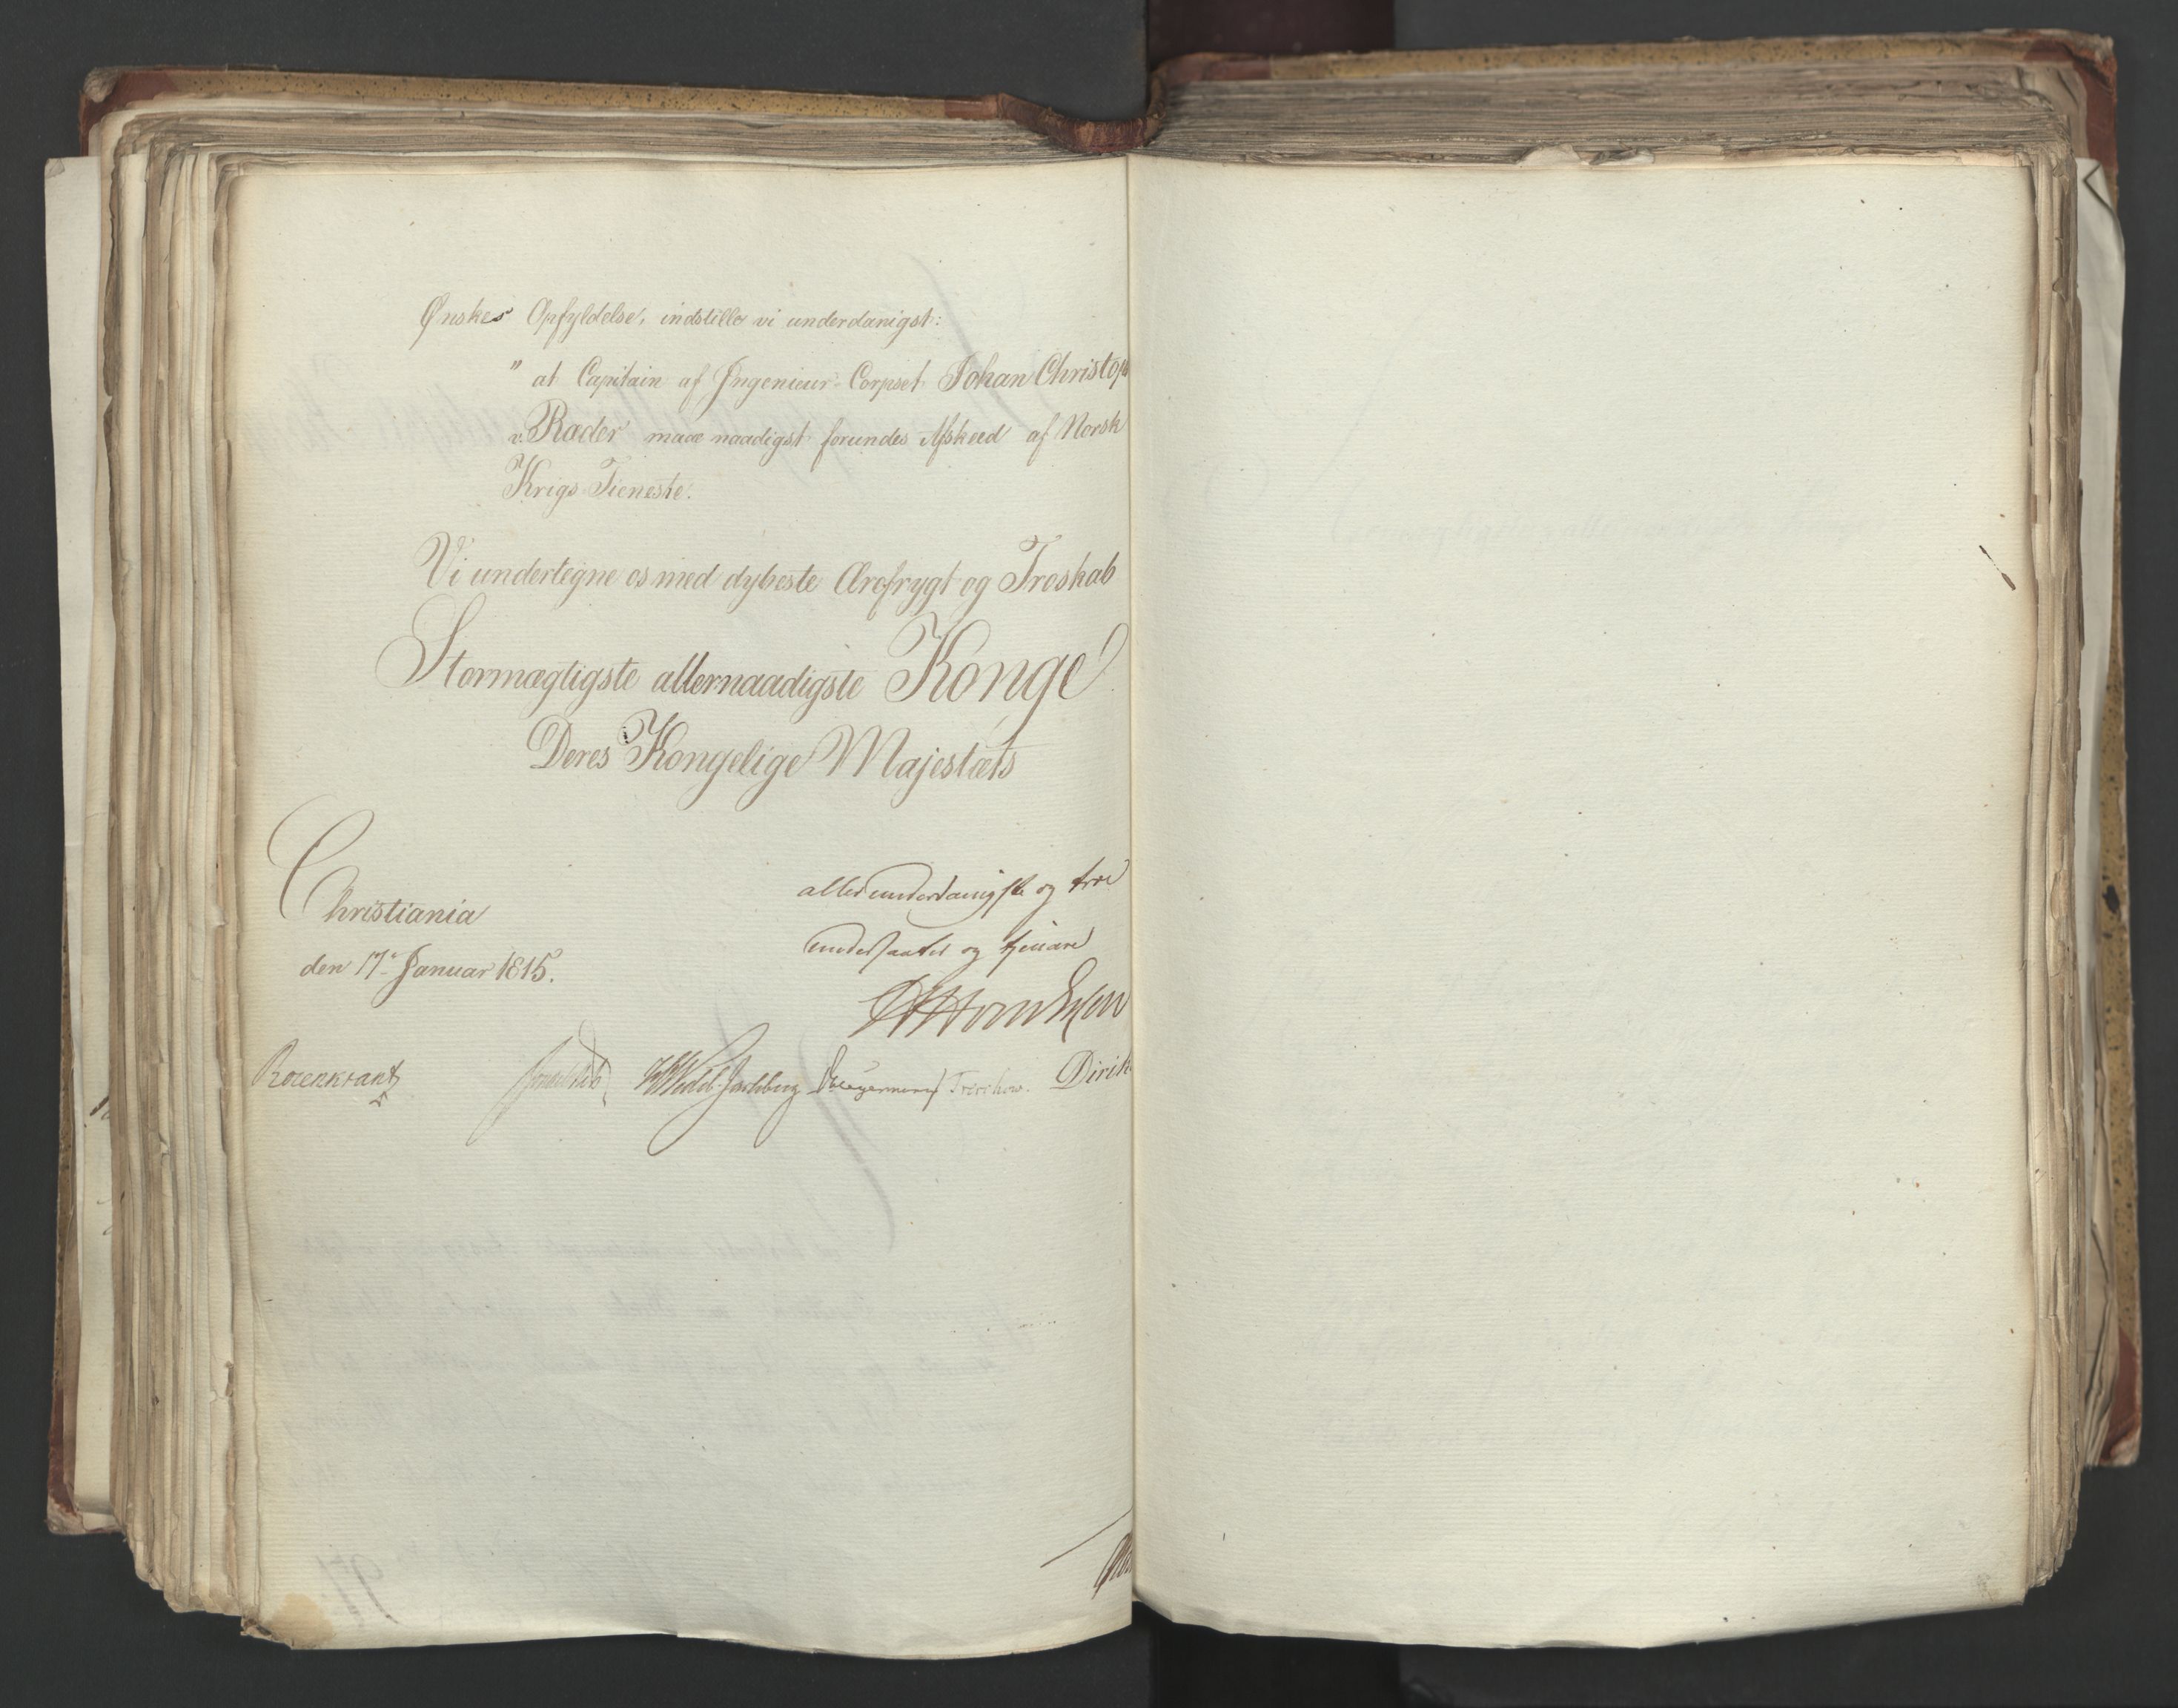 Ønskes Opfyldelse, indstille vi underdanigst:
" at Capitain af Ingenieur-Corpset Johan Christop
v. Ræder maae naadigst forundes Afskeed af Norsk
Krigs-Tieneste.
Vi undertegne os med dybeste Ærefrygt og Troskab
Stormægtigste allernaadigste Konge
Deres Kongelige Majestæts
Christiania
den 17de Januar 1815.
allerunderdanigste og troe
undersaatter og tjenere
Rosenkrantz Sommerfeldt HWedel-Jarlsberg Hegermann Treschow. Dirik